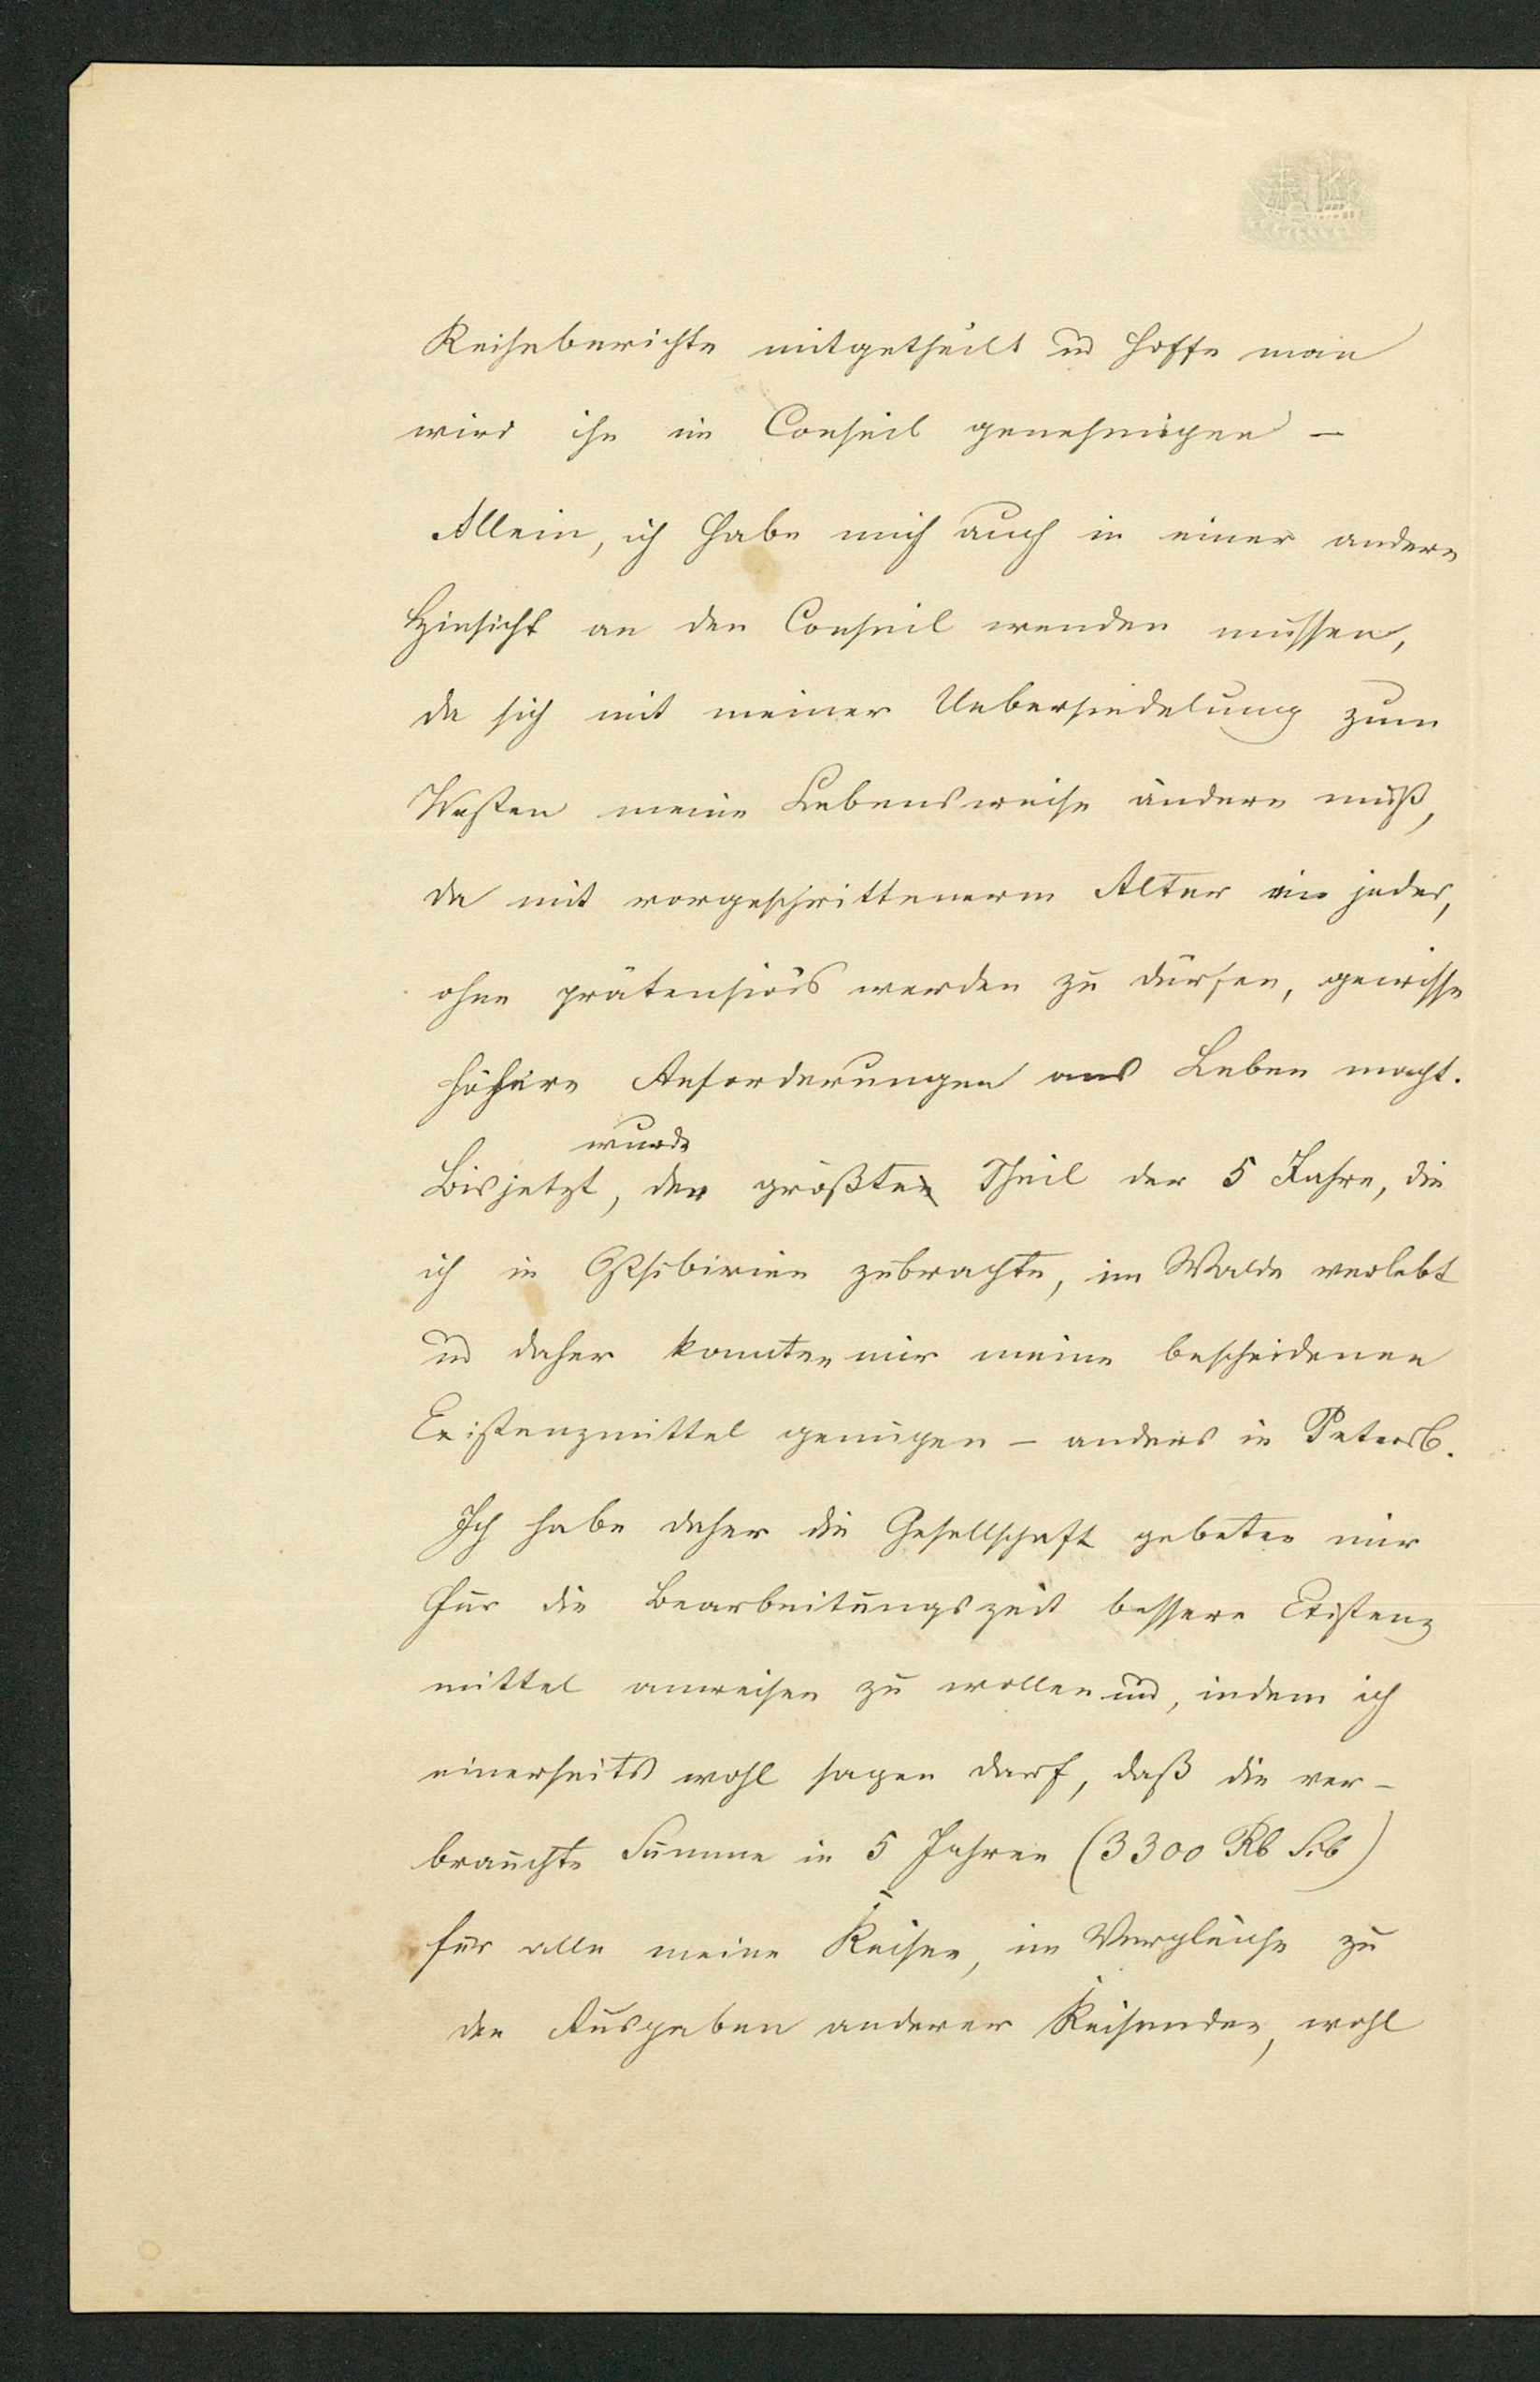 Reiseberichte mitgetheilt und hoffe man
wird ihn im Conseil genehmigen –
Allein, ich habe mich auch in einer andern
Hinsicht an den Conseil wenden müssen,
da sich mit meiner Uebersiedelung zum
Westen meine Lebensweise ändern muß,
da mit vorgeschrittenerm Alter ein jeder,
ohne prätensiös werden zu dürfen, gewisse
höhere Anforderungen ans Leben macht.
wurde
Bis jetzt, der größte Theil der 5 Jahre, die
ich in Ostsibirien zubrachte, im Walde verlebt
und daher konnten mir meine bescheidenen
Existenzmittel genügen – anders in Petersb.
Ich habe daher die Gesellschaft gebeten mir
für die Bearbeitungszeit bessere Existenz
mittel anweisen zu wollen und, indem ich
einerseits wohl sagen darf, daß die ver-
brauchte Summe in 5 Jahren (3300 Rb Slb)
für alle meine Reisen, im Vergleiche zu
den Ausgaben anderer Reisenden, wohl